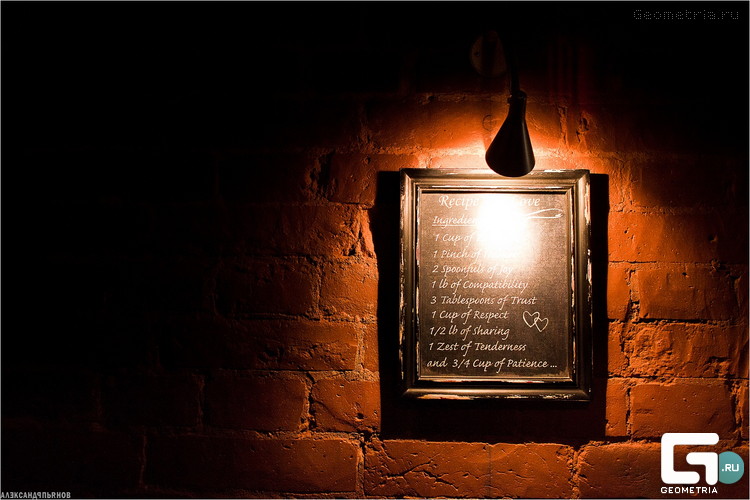 Geometria.ru
Recipe Love
Ingredients
1 Cup of
1 Pinch of
2 Spoonfuls of Joy
1 lb of Compatibility
3 Tablespoons of Trust
1 Cup of Respect
1/2 lb of Sharing
1 Zest of Tenderness
and 3/4 Cup of Patience ...
G .RU
GEOMETRIA